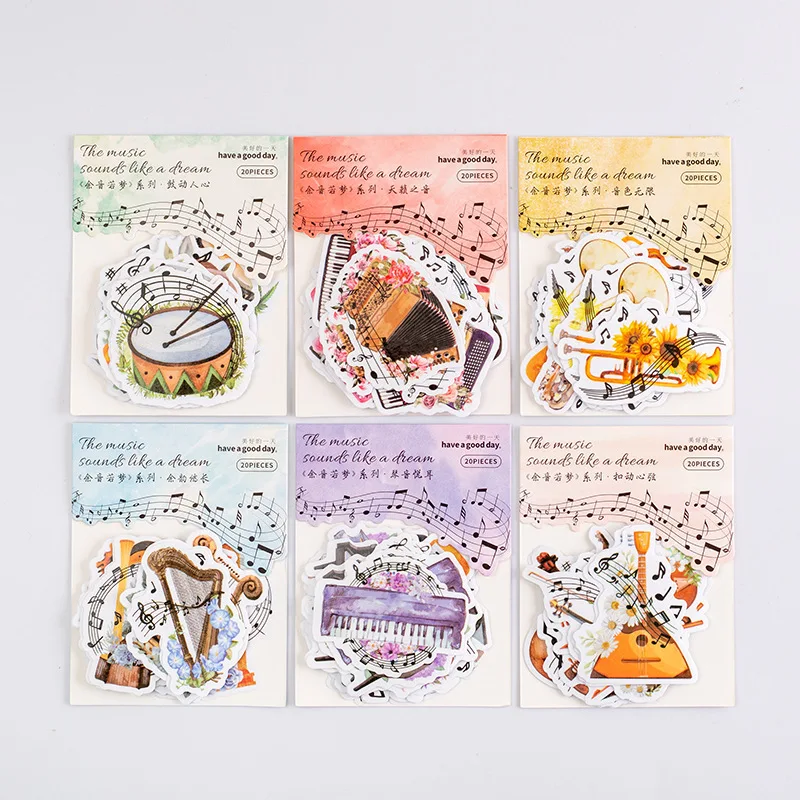 The music
sounds like a dream
美好的一天
have a good day.
20PIECES
《念音若梦》系列·鼓动人心
The music
sounds like a dream
美好的一天
have a good day.
20PIECES
《念音若梦》系列·天籁之音
The music
sounds like a dream
美好的一天
have a good day.
20PIECES
《念音若梦》系列·音色无限
The music
sounds like a dream
美好的一天
have a good day.
20PIECES
《念音若梦》系列·余韵悠长
The music
sounds like a dream
美好的一天
have a good day.
20PIECES
《念音若梦》系列·琴音悦耳
The music
sounds like a dream
美好的一天
have a good day.
20PIECES
《念音若梦》系列·扣动心弦